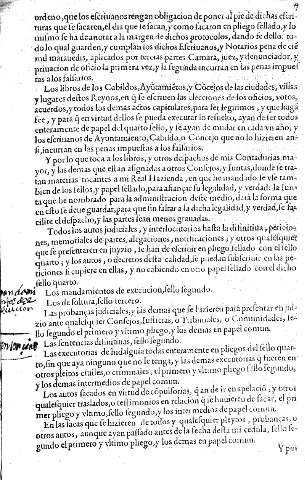 ordeno, que los escriuanos tengan obligacion de poner al pie de dichas escri-
turas que se sacaren, el dia que se sacan, y como sacaron en pliego sellado, y lo
mismo se ha de anotar a la margen de dichos protocolos, dando fe dello. to-
do lo qual guarden, y cumplan los dichos Escriuanos, y Notarios pena de cie
mil marauedis, aplicados por terceras partes Camara, juez, y denunciador, y
priuacion de oficio la primera vez, y la segunda incurran en las penas impues
tas a los falsarios.
Los libros de los Cabildos, Ayũtamiẽtos, y Cõcejos de las ciudades, villas
y lugares destos Reynos, en q̃ se escriuen las elecciones de los oficios, votos,
acuerdos, y todos los demas actos capitulares, para ser legitimos, y que hagã
fee, y para q̃ en virtud dellos se pueda executar lo resuelto, ayan de ser todos
enteramente de papel del quarto sello, y se ayan de mudar en cada vn año, y
los escriuanos de Ayuntamiento, Cabildo, ò Concejo que no lo hizieren an-
si, incurran en las penas impuestas a los falsarios.
Y por lo que toca a los libros, y otros despachos de mis Contadurias, ma-
yor, y las demas que estan asignadas a otros Consejos, y Iuntas, donde se tra-
tan materias tocantes a mi Real Hazienda, en que he mandado se vse tam-
bien de los sellos, y papel sellado, para afiançar su legalidad, y verdad: la Iun-
ta que he nombrado para la administracion deste medio, darà la forma que
en esto se deue guardar, para que sin faltar a dicha legalidad, y verdad, se fa-
cilite el despacho, y las partes sean menos grauadas.
Todos los autos judiciales, y interlocutorios hasta la difinitiua, peticio-
nes, memoriales de partes, alegaciones, notificaciones, y otros qualesquier
que se presentaren en juyzio, se han de escriuir en pliego sellado con el sello
quarto; y los autos, ò decretos desta calidad, se puedan subscriuir en las pe-
ticiones si cupiere en ellas, y no cabiendo en otro papel sellado con el dicho
sello quarto.
Los mandamientos de execucion, sello segundo.
Los de soltura, sello tercero.
Las probanças judiciales, y las demas que se hizieren para presentar en jui-
zio ante qualesquier Consejos, Iusticias, ò Tribunales, ò Comunidades, se-
llo segundo el primero y vltimo pliego, y los demas en papel comun.
Las sentencias difinitiuas, sello segundo.
Las executorias de hidalguia todas enteramente en pliegos del sello quar-
to, sin que aya ninguno que no le tenga, y las demas executorias q̃ fueren en
otros pleitos ciuiles, ò criminales, el primero y vltimo pliego sello segundo,
y los demas intermedios de papel comun.
Los autos sacados en virtud de cõpulsorias, q̃ an de ir en apelaciõ, y otros
qualesquier traslados, ò testimonios en relacion q̃ se huuieren de sacar, el pri
mer pliego y vltimo, sello segundo, y los intermedios de papel comun.
En las sacas que se hizieren de todos y qualesquier pleytos, probanças, ò
otros autos, aunque ayan passado antes de la fecha desta mi cedula, sello se-
gundo el primero y vltimo pliego, y los demas en papel comun.
Y por